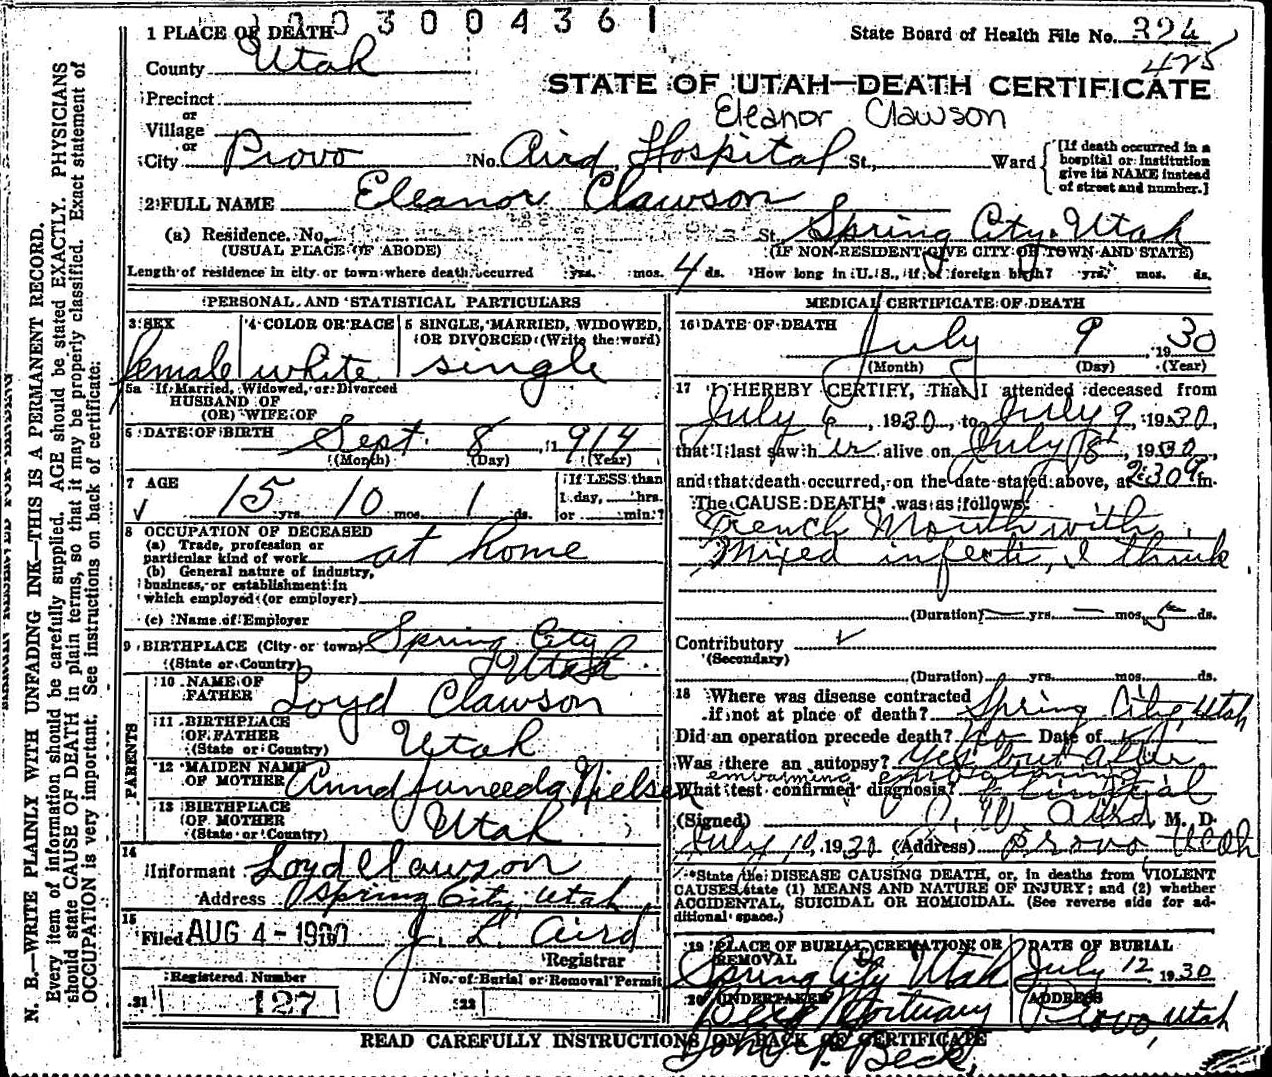 1003004361
1 PLACE OF DEATH
State Board of Health File No. 324
425
County Utah
STATE OF UTAH—DEATH CERTIFICATE
Precinct
or
Village
or
Eleanor Clawson
City Provo No. Aird Hospital St., Ward
[If death occurred in a hospital or institution give its NAME instead of street and number.]
2 FULL NAME Eleanor Clawson
(a) Residence. No. St. Spring City, Utah
(USUAL PLACE OF ABODE) (IF NON-RESIDENT GIVE CITY OR TOWN AND STATE)
Length of residence in city or town where death occurred yrs. mos. 4 ds. How long in U. S., if of foreign birth? yrs. mos. ds.
PERSONAL AND STATISTICAL PARTICULARS
3 SEX 4 COLOR OR RACE 5 SINGLE, MARRIED, WIDOWED, OR DIVORCED (Write the word)
female white single
5a If Married, Widowed, or Divorced
HUSBAND OF
(OR) WIFE OF
6 DATE OF BIRTH Sept. 8, 1914
(Month) (Day) (Year)
7 AGE 15 yrs. 10 mos. 1 ds.
If LESS than
1 day, hrs.
or min.?
8 OCCUPATION OF DECEASED
(a) Trade, profession or
particular kind of work at home
(b) General nature of industry,
business, or establishment in
which employed (or employer)
(c) Name of Employer
9 BIRTHPLACE (City or town) Spring City
(State or Country) Utah
PARENTS
10 NAME OF FATHER Loyd Clawson
11 BIRTHPLACE OF FATHER
(State or Country) Utah
12 MAIDEN NAME OF MOTHER Annd Juneeda Nielsen
13 BIRTHPLACE OF MOTHER
(State or Country) Utah
14
Informant Loyd Clawson
Address Spring City, Utah
15
Filed AUG 4 - 1930 J. L. Aird
Registrar
Registered Number No. of Burial or Removal Permit
21 127 22
MEDICAL CERTIFICATE OF DEATH
16 DATE OF DEATH
July 9, 1930
(Month) (Day) (Year)
17 I HEREBY CERTIFY, That I attended deceased from
July 6, 1930, to July 9, 1930,
that I last saw her alive on July 8, 1930,
and that death occurred, on the date stated above, at 2:30 m.
The CAUSE DEATH* was as follows:
Trench Mouth with
Mixed infecti, I think
(Duration) yrs. mos. 5 ds.
Contributory
(Secondary)
(Duration) yrs. mos. ds.
18 Where was disease contracted
if not at place of death? Spring City, Utah
Did an operation precede death? no Date of
Was there an autopsy? Yes but after
embalming
What test confirmed diagnosis?
(Signed) Aird, M. D.
July 10, 1930 (Address) Provo, Utah
*State the DISEASE CAUSING DEATH, or, in deaths from VIOLENT
CAUSES, state (1) MEANS AND NATURE OF INJURY; and (2) whether
ACCIDENTAL, SUICIDAL OR HOMICIDAL. (See reverse side for ad-
ditional space.)
19 PLACE OF BURIAL, CREMATION, OR REMOVAL DATE OF BURIAL
Spring City Utah July 12 1930
20 UNDERTAKER ADDRESS
Beck Mortuary Provo, Utah
READ CAREFULLY INSTRUCTIONS ON BACK OF CERTIFICATE
Beck,
N. B.—WRITE PLAINLY WITH UNFADING INK—THIS IS A PERMANENT RECORD.
Every item of information should be carefully supplied. AGE should be stated EXACTLY. PHYSICIANS
should state CAUSE OF DEATH in plain terms, so that it may be properly classified. Exact statement of
OCCUPATION is very important. See instructions on back of certificate.